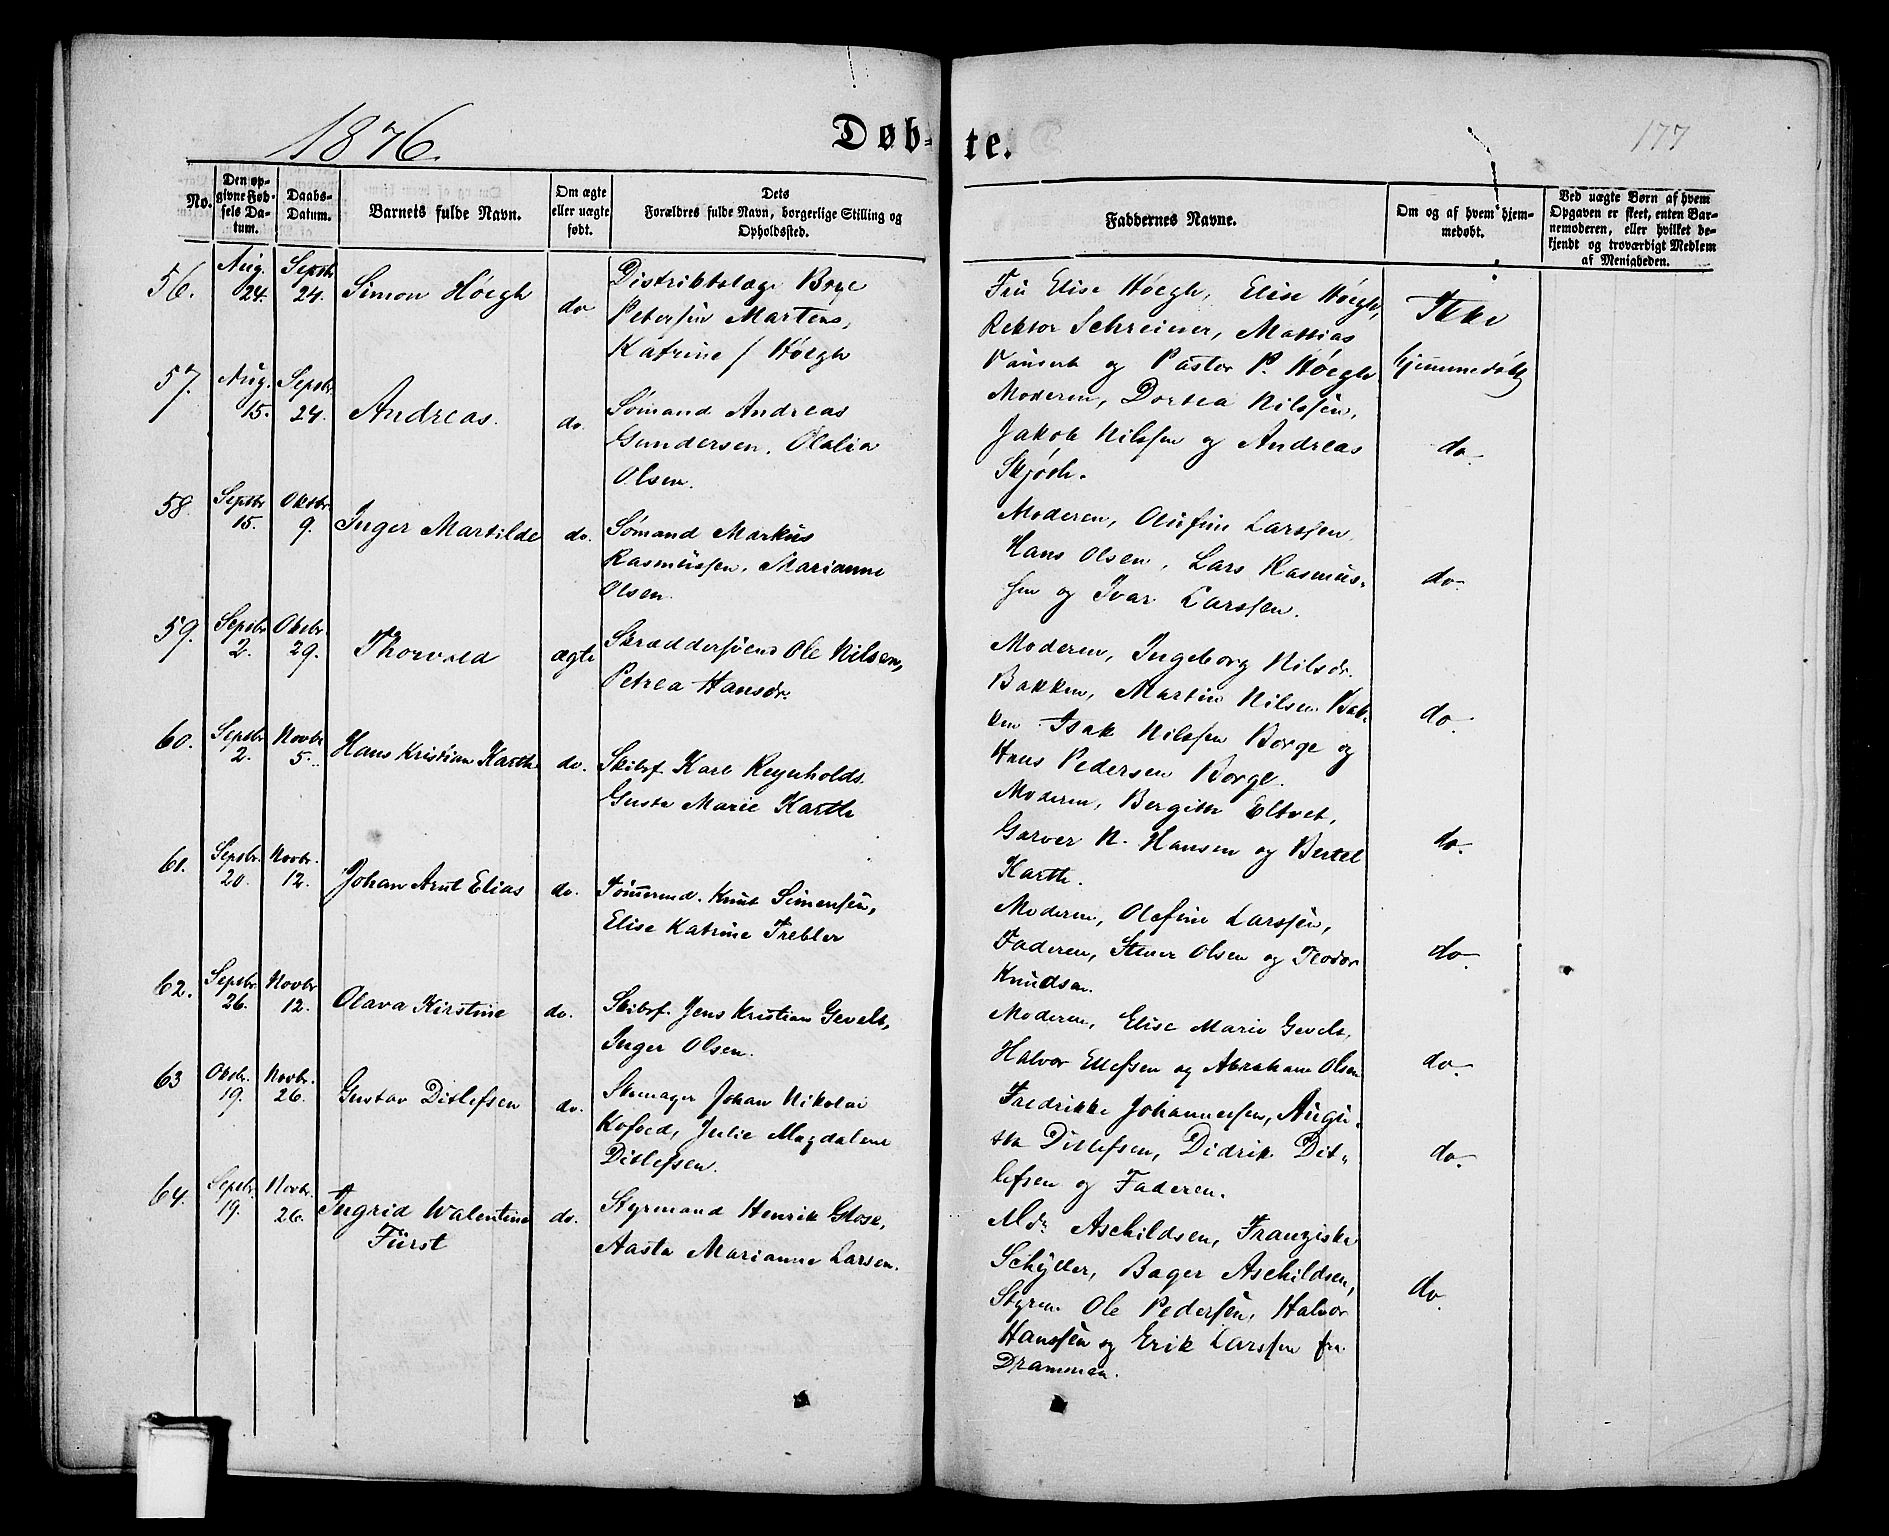 1876.
Døb-
te.
177
No.
Den op-
givne Fød-
sels Da-
tum.
Daabs-
Datum.
Barnets fulde Navn.
Om ægte
eller uægte
født.
Dets
Forældres fulde Navn, borgerlige Stilling og
Opholdssted.
Faddernes Navne.
Om og af hvem hjem-
medøbt.
Ved uægte Børn af hvem
Opgaven er skeet, enten Bar-
nemoderen, eller hvilket be-
kjendt og troværdigt Medlem
af Menigheden.
56.
Aug.
24.
Septbr
24.
Simon Høegh
do
Distriktslæge Boye
Petersen Martens,
Katrine f Høegh
Fru Elise Høegh, Elise Høegh,
Rektor Schreiner, Mattias
og Pastor P. Høegh
Ikke
hjemmedøbt
57.
Aug.
15.
Septbr
24.
Andreas.
do.
Sømand Andreas
Gundersen, Olalia
Olsen.
Moderen, Dortea Nilssen,
Jakob Nilssen og Andreas
Skjøth.
do.
58.
Septbr
15.
Oktbr
9.
Inger Martilde
do.
Sømand Markus
Rasmussen, Marianne
Olsen.
Moderen, Olufine Larssen
Hans Olsen, Lars Rasmus-
sen og Ivar Larssen.
do.
59.
Septbr
2.
Oktbr.
29.
Thorvald
ægte
Skræddersvend Ole Nilsen,
Petrea Hansdr.
Moderen, Ingeborg Nilsdr.
Bakken, Martin Nilsen Bak-
ken Isak Nilssen Borge og
Hans Pedersen Borge.
do.
60.
Septbr
2.
Novbr
5.
Hans Kristian Karth
do.
Skibsf. Karl Reynholds
Gusta Marie Karth
Moderen, Bergitte Eltvet,
Garver N. Hansen og Bertel
Karth.
do.
61.
Septbr.
20.
Novbr.
12.
Johan Arnt Elias
do.
Tømmermd. Knut Simensen,
Elise Katrine Trebler
Moderen, Olefine Larssen,
Faderen, Stener Olsen og Teodor
Knudsen.
do.
62.
Septbr
26.
Novbr
12.
Olava Kirstine
do.
Skibsf. Jens Kristian Gevelt,
Inger Olsen.
Moderen, Elise Marie Gevelt,
Halvor Ellefsen og Abraham Olsen
do.
63
Oktbr.
19.
Novbr.
26.
Gustav Ditlefsen
do.
Skomager Johan Nikolai
Kofoed, Julie Magdalene
Ditlefsen.
Fredrikke Johannessen, Augu-
sta Ditlefsen, Didrik Dit-
lefsen og Faderen.
do.
64.
Septbr.
19.
Novbr.
26.
Ingrid Walentine
Fürst
do.
Styrmand Henrik Glose,
Aasta Marianne Larsen.
Md. Aschildsen, Franziska
Schyder, Bager Aschildsen,
Styrm. Ole Pedersen, Halvor
Hanssen og Erik Larssen fra
Drammen.
do.